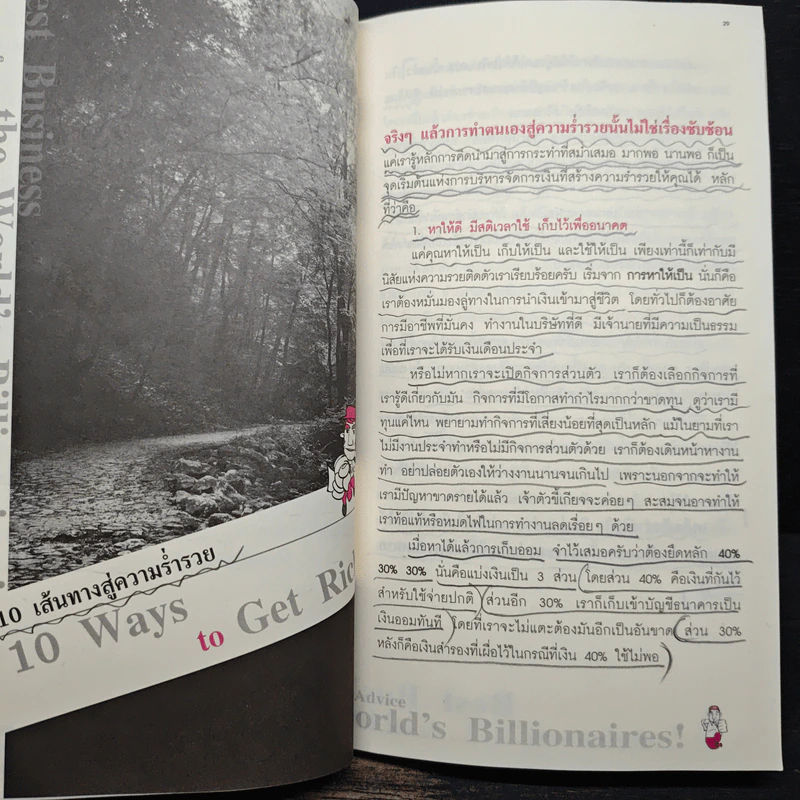 est Business
the World's Billi
10 เส้นทางสู่ความร่ำรวย
10 Ways
to Get Rich
29
จริงๆ แล้วการทำตนเองสู่ความร่ำรวยนั้นไม่ใช่เรื่องซับซ้อน
แค่เรารู้หลักการคิดนำมาสู่การกระทำที่สม่ำเสมอ มากพอ นานพอ ก็เป็น
จุดเริ่มต้นแห่งการบริหารจัดการเงินที่สร้างความร่ำรวยให้คุณได้ หลัก
ที่ว่าคือ
1. หาให้ดี มีสติเวลาใช้ เก็บไว้เพื่ออนาคต
แค่คุณหาให้เป็น เก็บให้เป็น และใช้ให้เป็น เพียงเท่านี้ก็เท่ากับมี
นิสัยแห่งความรวยติดตัวเราเรียบร้อยครับ เริ่มจาก การหาให้เป็น นั่นก็คือ
เราต้องหมั่นมองลู่ทางในการนำเงินเข้ามาสู่ชีวิต โดยทั่วไปก็ต้องอาศัย
การมีอาชีพที่มั่นคง ทำงานในบริษัทที่ดี มีเจ้านายที่มีความเป็นธรรม
เพื่อที่เราจะได้รับเงินเดือนประจำ
หรือไม่หากเราจะเปิดกิจการส่วนตัว เราก็ต้องเลือกกิจการที่
เรารู้ดีเกี่ยวกับมัน กิจการที่มีโอกาสทำกำไรมากกว่าขาดทุน ดูว่าเรามี
ทุนแค่ไหน พยายามทำกิจการที่เสี่ยงน้อยที่สุดเป็นหลัก แม้ในยามที่เรา
ไม่มีงานประจำทำหรือไม่มีกิจการส่วนตัวด้วย เราก็ต้องเดินหน้าหางาน
ทำ อย่าปล่อยตัวเองให้ว่างงานนานจนเกินไป เพราะนอกจากจะทำให้
เรามีปัญหาขาดรายได้แล้ว เจ้าตัวขี้เกียจจะค่อยๆ สะสมจนอาจทำให้
เราท้อแท้หรือหมดไฟในการทำงานลดเรื่อยๆ ด้วย
เมื่อหาได้แล้วการเก็บออม จำไว้เสมอครับว่าต้องยึดหลัก 40%
30% 30% นั่นคือแบ่งเงินเป็น 3 ส่วน โดยส่วน 40% คือเงินที่กันไว้
สำหรับใช้จ่ายปกติ ส่วนอีก 30% เราก็เก็บเข้าบัญชีธนาคารเป็น
เงินออมทันที โดยที่เราจะไม่แตะต้องมันอีกเป็นอันขาด ส่วน 30%
หลังก็คือเงินสำรองที่เผื่อไว้ในกรณีที่เงิน 40% ใช้ไม่พอ
Advice
orld's Billionaires!